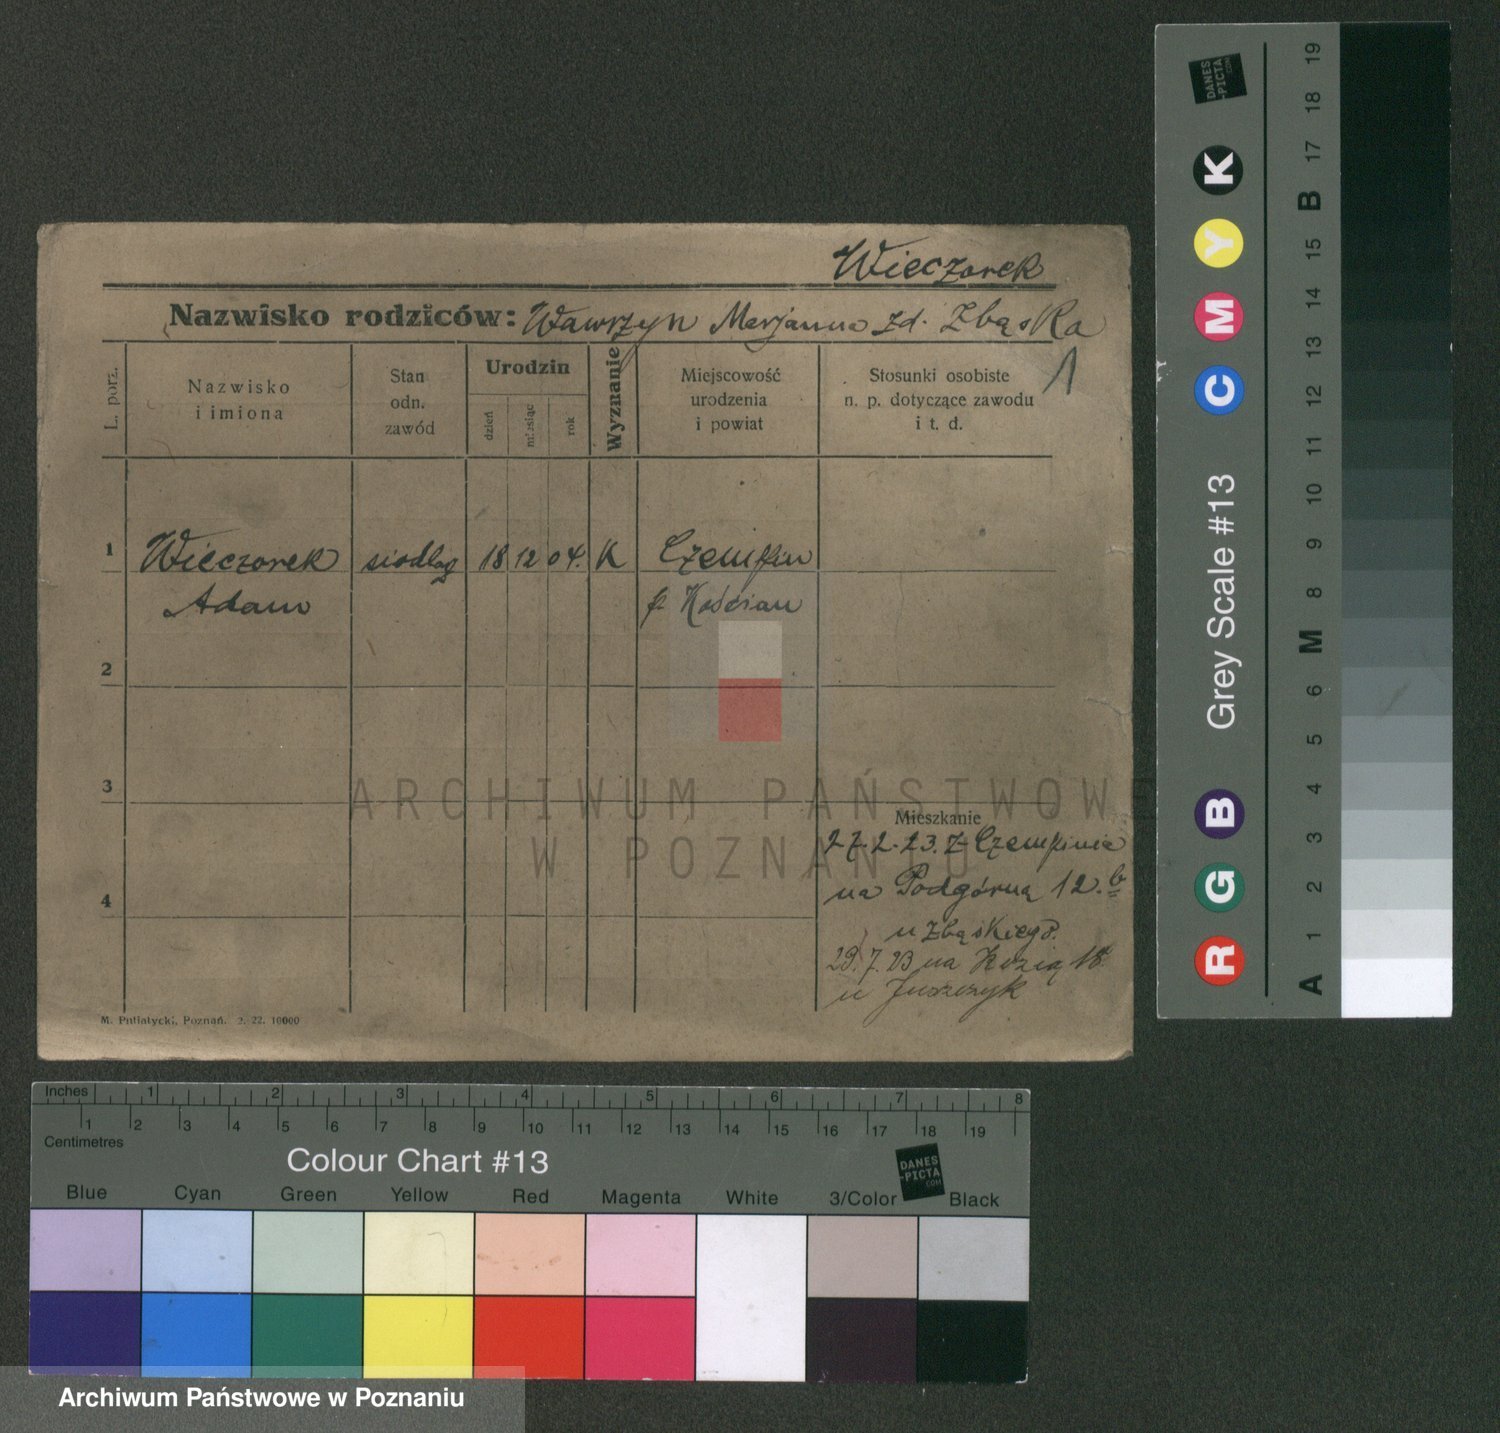 Wieczorek
Nazwisko rodziców: Wawrzyn Marjanna zd. Zbąska
1
L. porz.
Nazwisko
i imiona
Stan
odn.
zawód
Urodzin
dzień
miesiąc
rok
Wyznanie
Miejscowość
urodzenia
i powiat
Stosunki osobiste
n. p. dotyczące zawodu
i t. d.
1 Wieczorek siodlag 18 12 04. K Czempin
Adam p Kościan
2
3
4
Mieszkanie
27.2.23. z Czempinia
na Podgórną 12.b
u Zbąskiego.
29.7.23 na Kozią 18
u Juszczyk
M. Putiatycki, Poznań. 2. 22. 10000
ARCHIWUM PAŃSTWOWE
W POZNANIU
Inches 1 2 3 4 5 6 7 8
1 2 3 4 5 6 7 8 9 10 11 12 13 14 15 16 17 18 19
Centimetres
Colour Chart #13
DANES
-PICTA
.COM
Blue Cyan Green Yellow Red Magenta White 3/Color Black
Archiwum Państwowe w Poznaniu
DANES
-PICTA
.COM
R G B Grey Scale #13 C M Y K
A 1 2 3 4 5 6 M 8 9 10 11 12 13 14 15 B 17 18 19